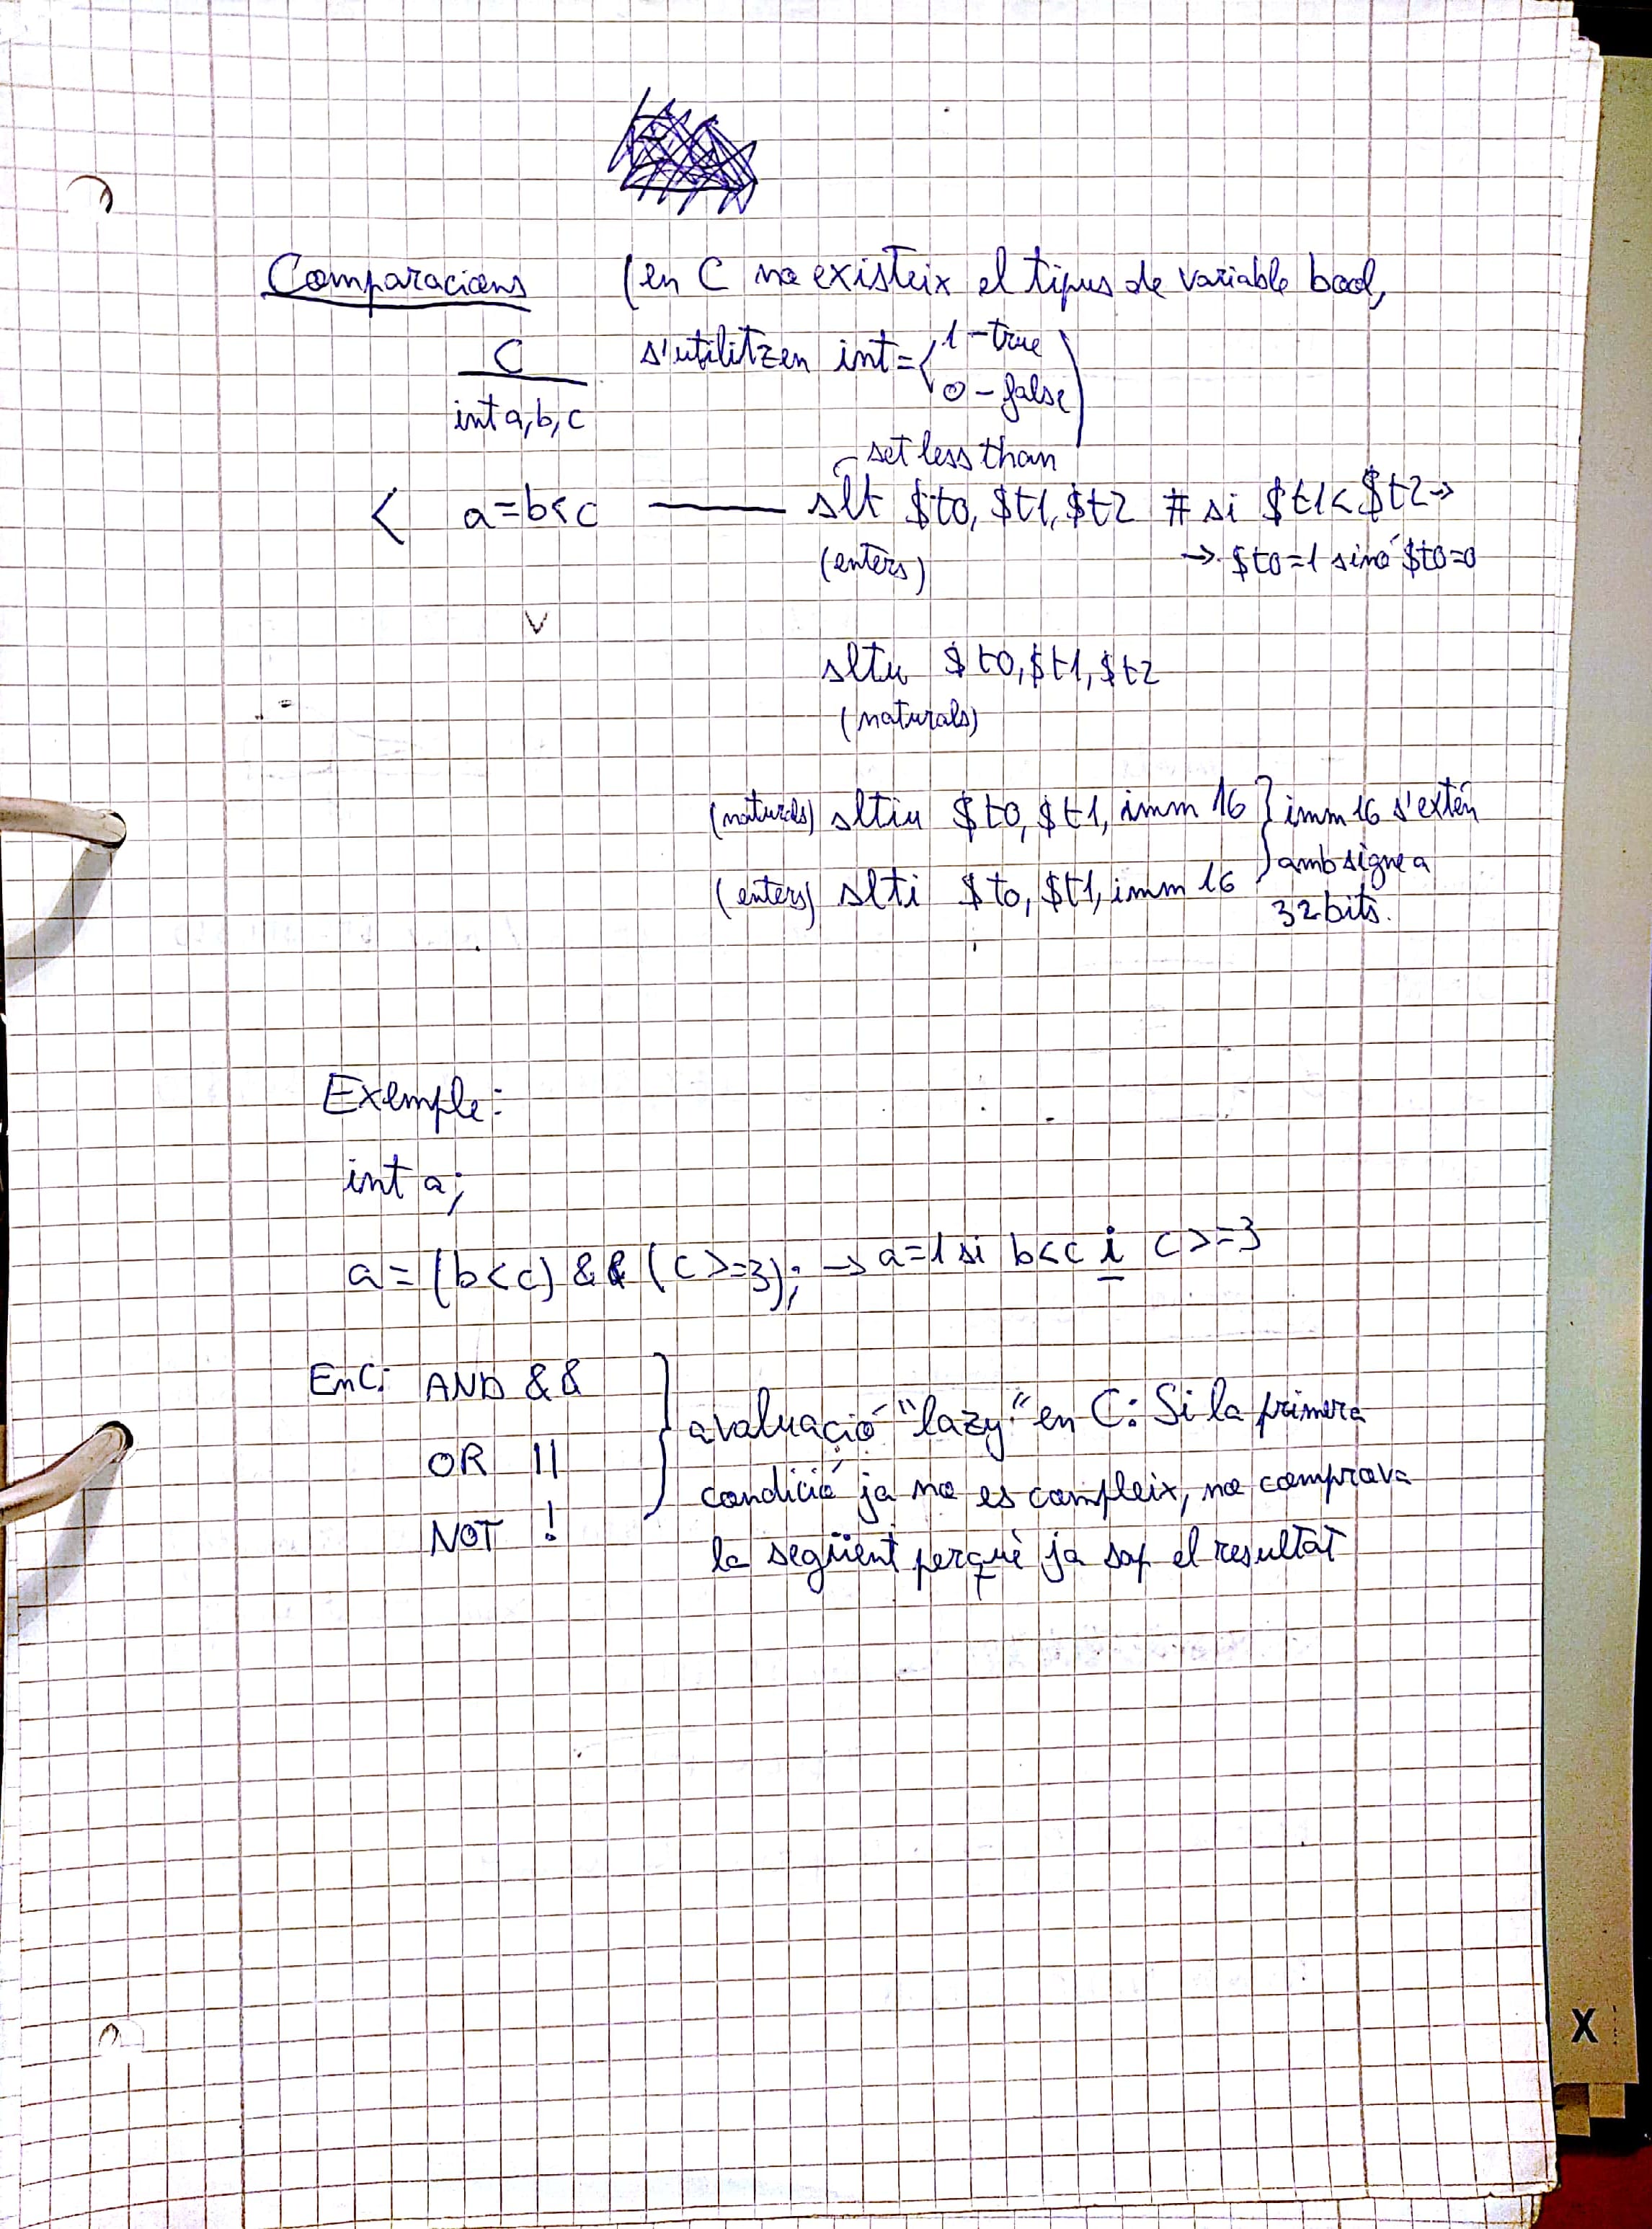 Comparacions (en C no existeix el tipus de variable bool,
C s'utilitzen int = { 1 - true
0 - false )
int a, b, c
set less than
< a = b < c —— slt $t0, $t1, $t2 # si $t1 < $t2 →
(enters) → $t0 = 1 sinó $t0 = 0
sltu $t0, $t1, $t2
(naturals)
(naturals) sltiu $t0, $t1, imm 16 } imm 16 s'extén
amb signe a
(enters) slti $t0, $t1, imm 16
32 bits.
Exemple:
int a;
a = (b < c) && (c >= 3); → a = 1 si b < c i c >= 3
En C: AND &&
avaluació "lazy" en C: Si la primera
OR ||
condició ja no es compleix, no comprova
NOT !
la següent perquè ja sap el resultat
X